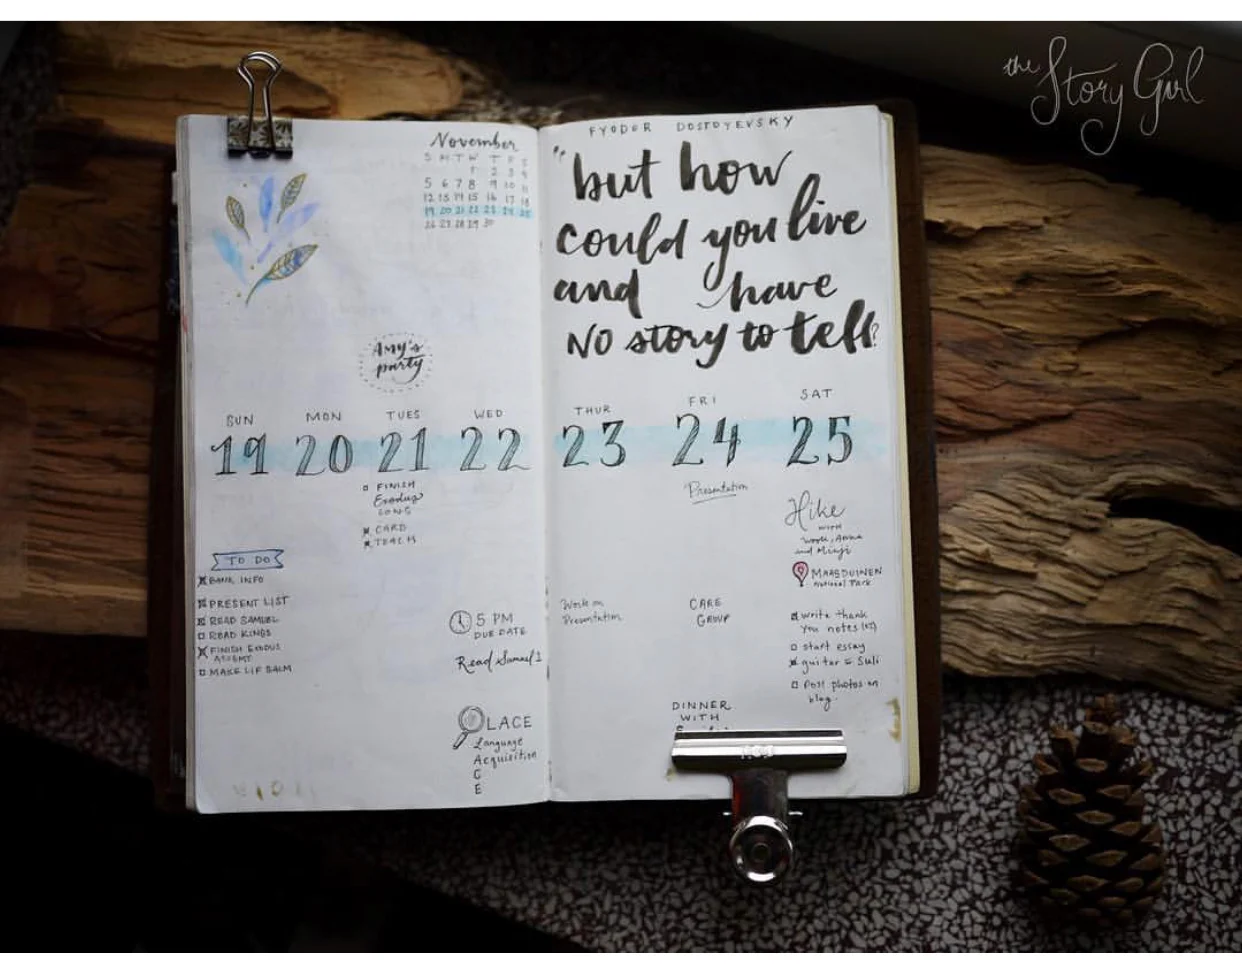 the Story Girl
November
S M T W T F S
1 2 3 4
5 6 7 8 9 10 11
12 13 14 15 16 17 18
19 20 21 22 23 24 25
26 27 28 29 30
Amy's
party
SUN MON TUES WED
19 20 21 22
FINISH
Exodus
SONG
CARD
TEACH
TO DO
BANK INFO
PRESENT LIST
READ SAMUEL
READ KINGS
FINISH EXODUS
MAKE LIP BALM
5 PM
DUE DATE
Read Samuel 1
LACE
Language
Acquisition
C
E
FYODOR DOSTOYEVSKY
"but how
could you live
and have
NO story to tell?
THUR FRI SAT
23 24 25
Presentation
Hike
with
Anna
and Minji
MAASDUINEN
National Park
Work on
Presentation
CARE
GROUP
write thank
you notes
start essay
guitar Suli
Post photos on
blog.
DINNER
WITH